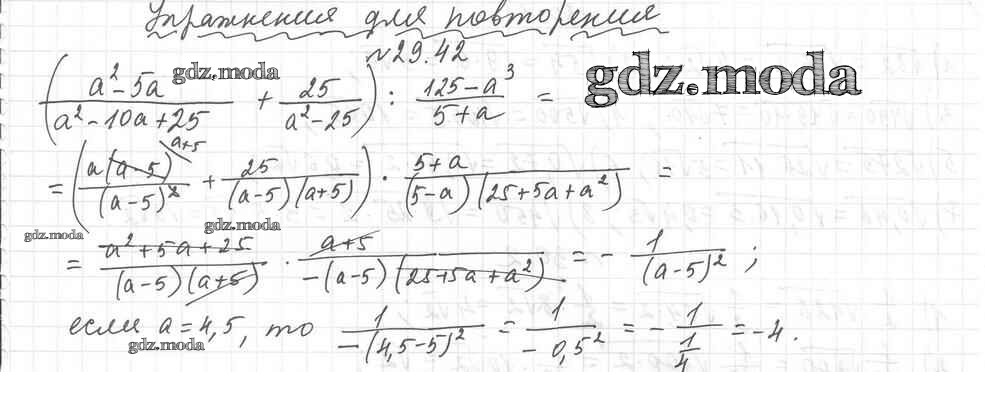 Упражнения для повторения
№29.42
gdz.moda
gdz.moda
(a²-5a / a²-10a+25 + 25 / a²-25) : 125-a³ / 5+a =
= (a(a-5)^{a+5} / (a-5)² + 25 / (a-5)(a+5)) · 5+a / (5-a)(25+5a+a²) =
gdz.moda
gdz.moda
= a²+5a+25 / (a-5)(a+5) · a+5 / -(a-5)(25+5a+a²) = - 1 / (a-5)² ;
если a=4,5, то 1 / -(4,5-5)² = 1 / -0,5² = - 1 / 1/4 = -4.
gdz.moda